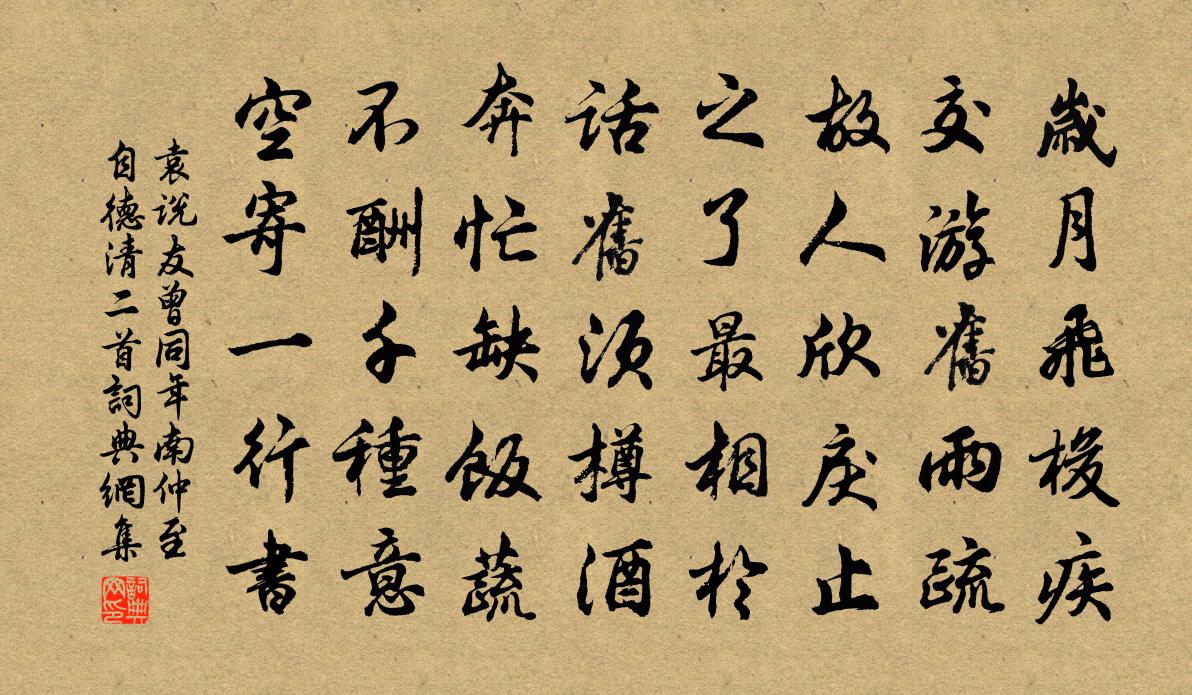 歲月飛梭疾
交游舊雨疏
故人欣戾止
之了最相於
話舊須樽酒
奔忙缺飯蔬
不酬千種意
空寄一行書
袁説友曾同年南仲至
自德清二首詞典網集
詞典網印